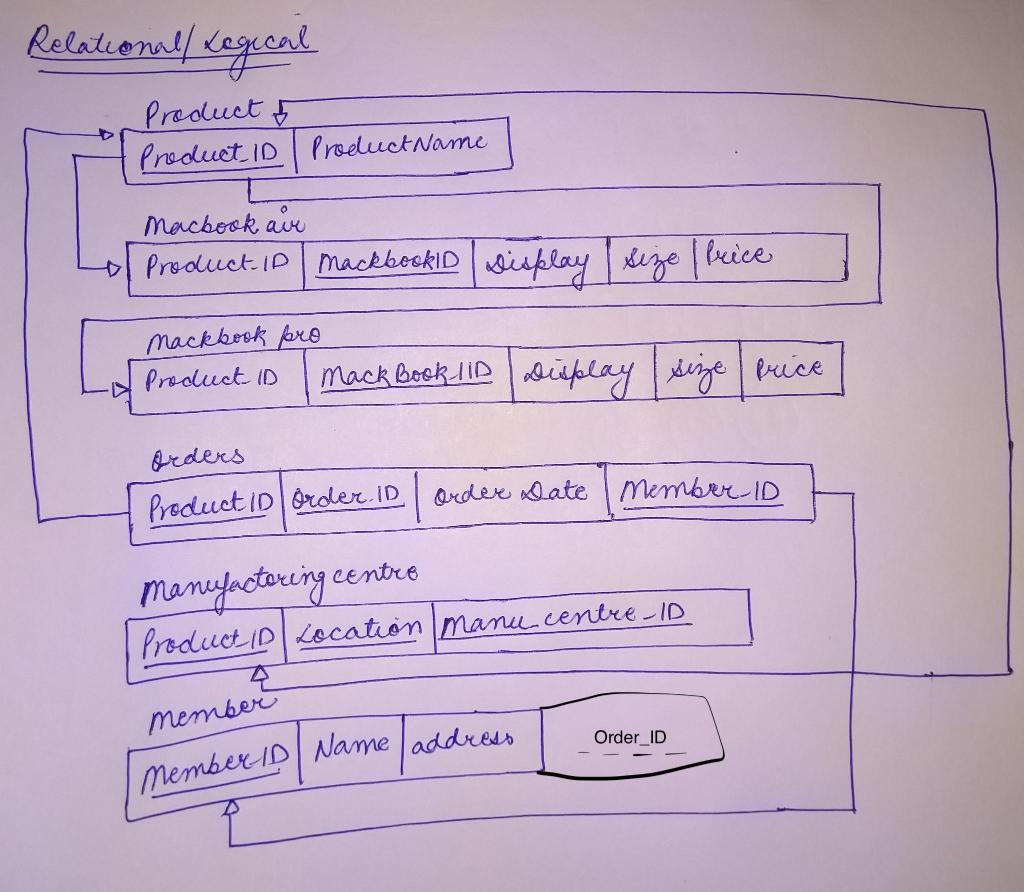 Relational/Logical
Product
Product_ID ProductName
Macbook air
Product_ID MackbookID Display Size Price
Mackbook pro
Product_ID MackBook_IID Display Size Price
Orders
Product_ID Order_ID Order Date Member_ID
Manufactoring centre
Product_ID Location Manu_centre_ID
Member
Member_ID Name address Order_ID